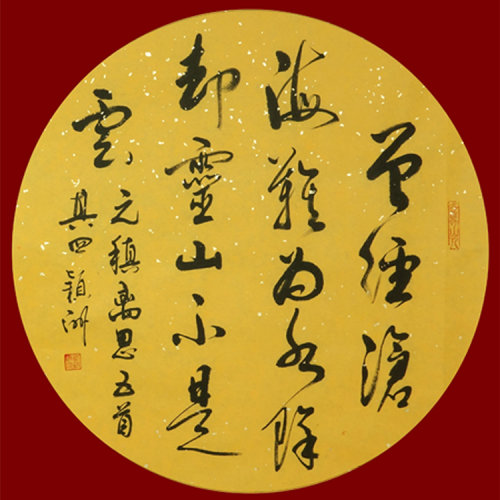 曾經滄
海難為水除
却靈山不是
雲
元稹离思五首
其四穎洲